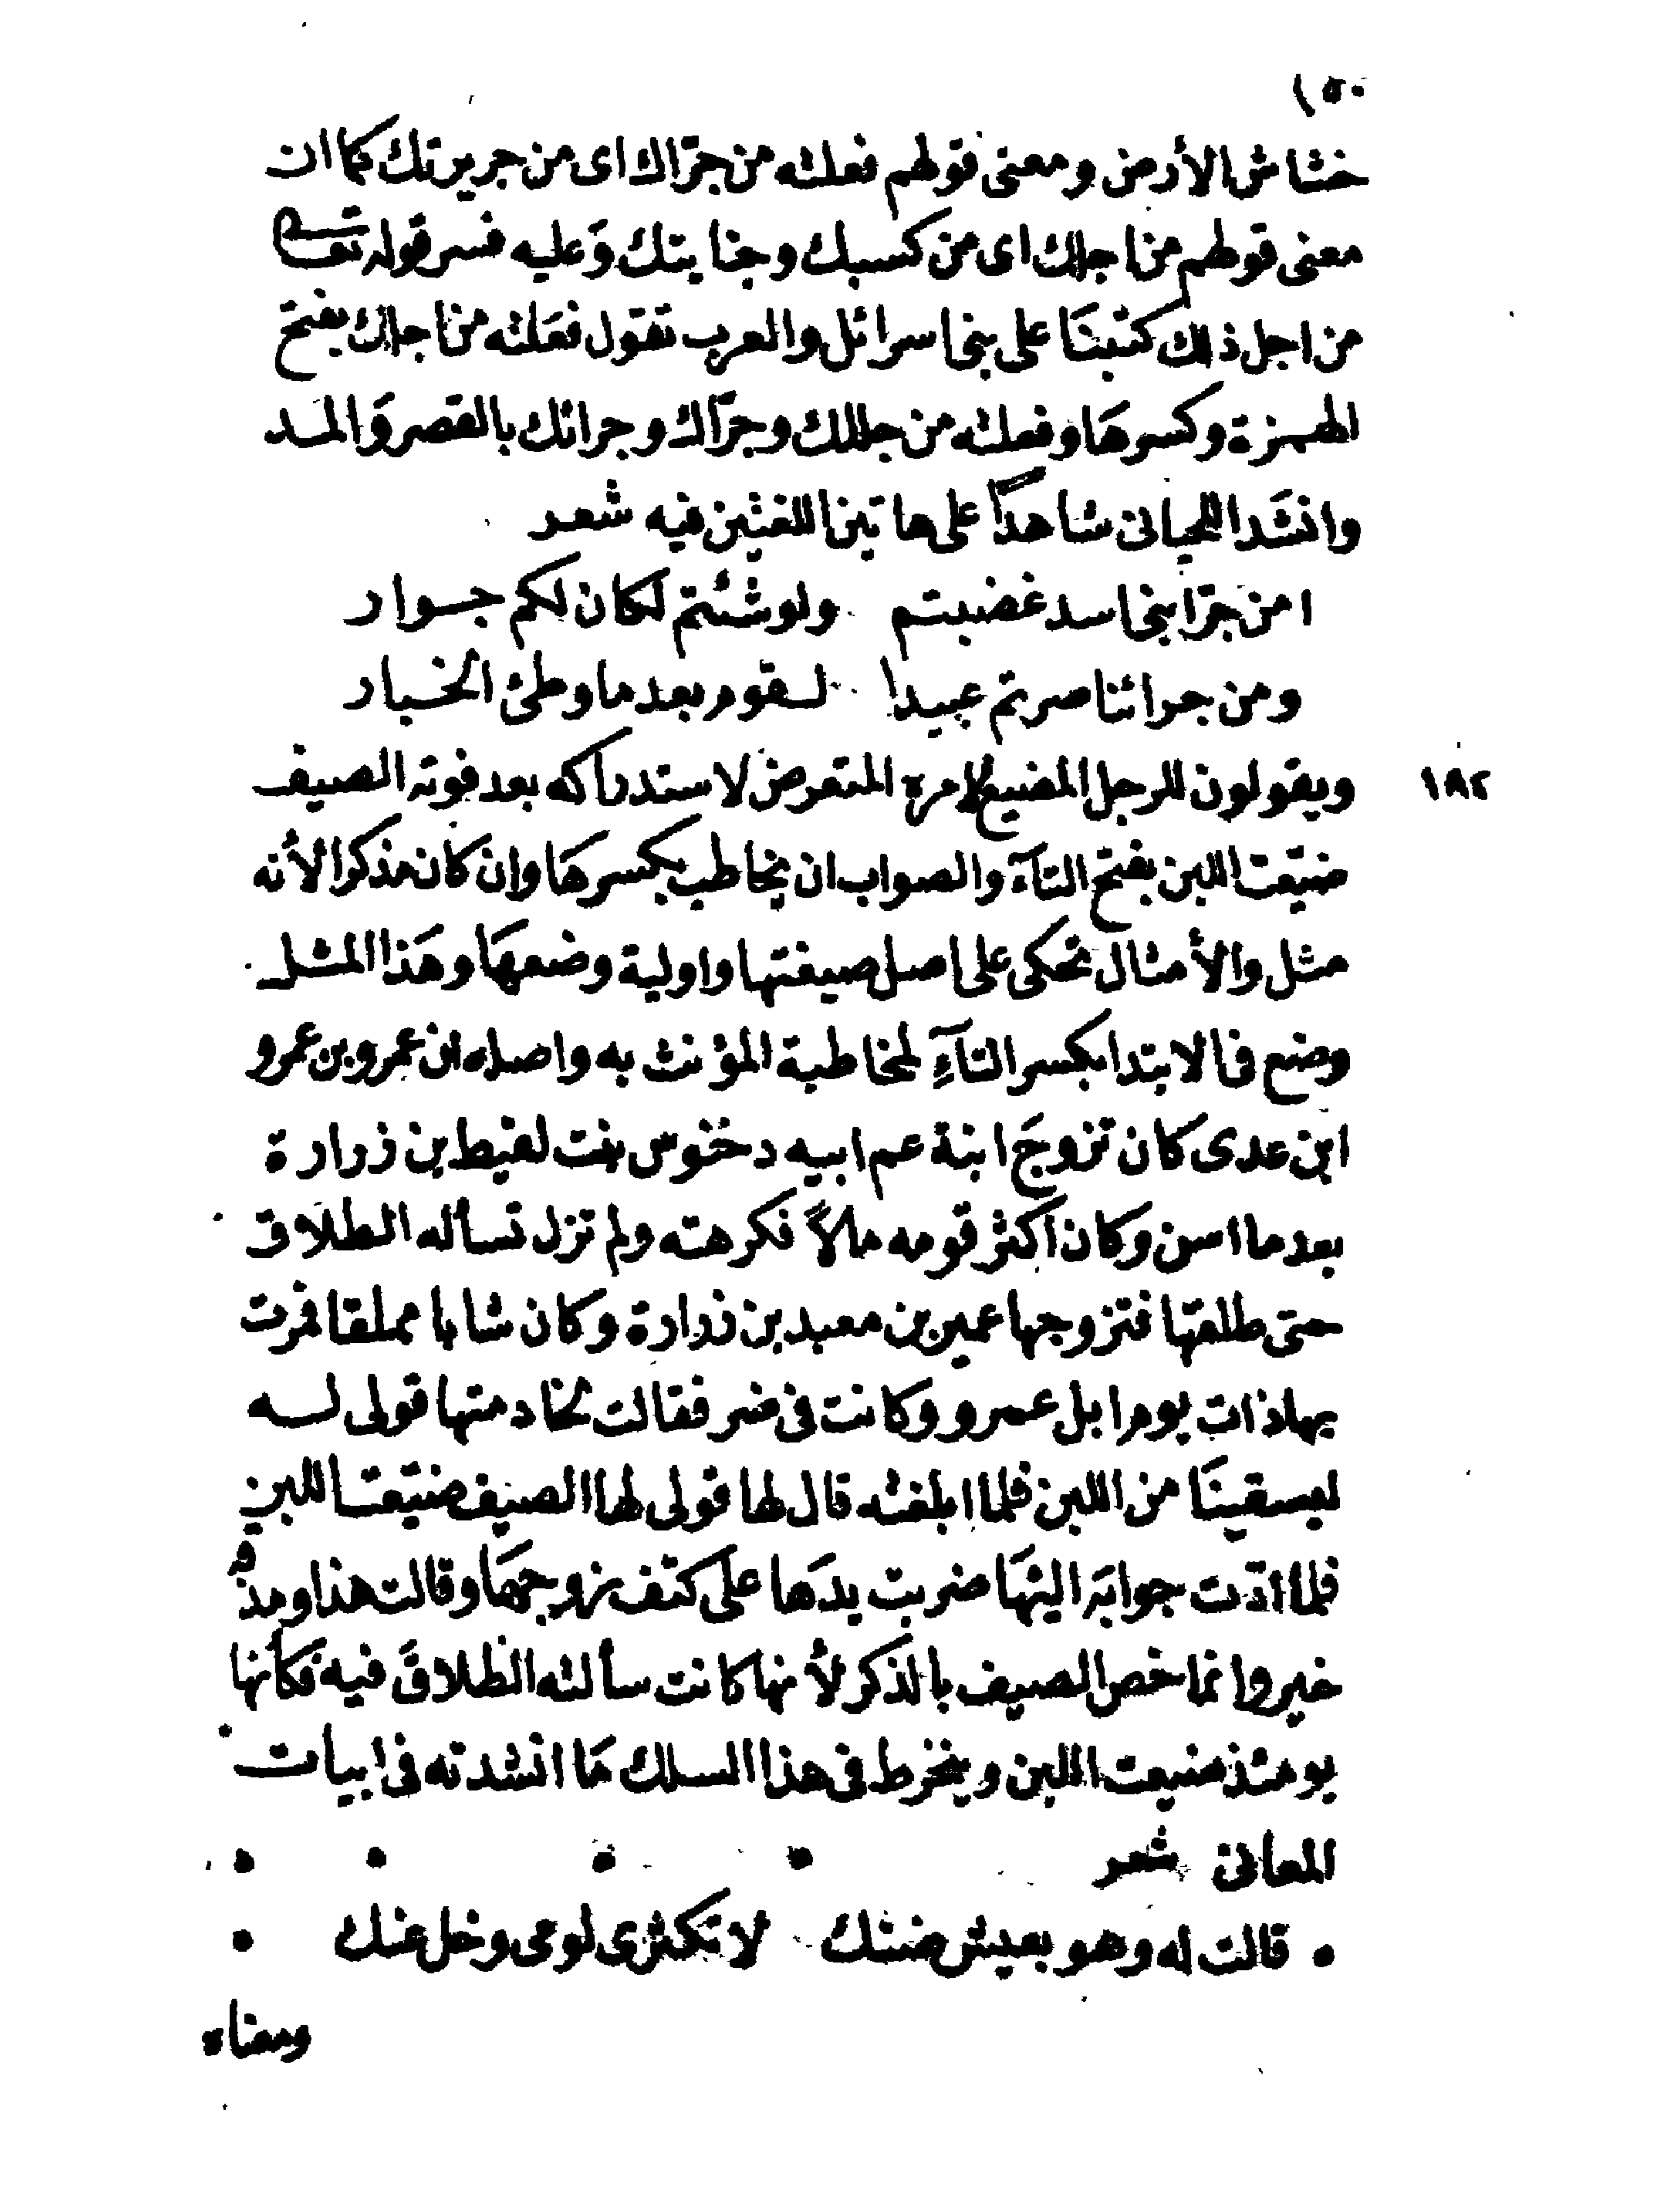 ١٥٠
خشاش الأرض ومعنى قولهم فعلته من جرّاك اى من جريرتك كما ان
معنى قولهم من اجلك اى من كسبك وجنايتك وَعليه فسر قوله تعالى
من اجل ذلك كتبنَا على بنى اسرائل والعرب تقول فعَلته من اجلك بفتح
الهمزة وكسرهَا وفعلته من جللك وجرّاك وجرائك بالقصر وَالمد
وانشَد اللحيانى شاهدًا على هاتين اللغتين فيه شعر
امن جرّا بنى اسد غضبتم ولو شئتم لكان لكم جوار
ومن جرائنا صرتم عبيدا لقوم بعد ما وطئ الخبار
١٨٢ ويقولون للرجل المضيع لامره المتعرض لاستدراكه بعد فوته الصيف
ضيّعت اللبن بفتح التآء والصواب ان يخاطب بكسرهَا وان كان مذكرا لأنه
مثل والأمثال تحكى على اصل صيغتها واولية وضعهَا وهَذا المثل
وضع فى الابتدا بكسر التآءِ لمخاطبة المؤنث به واصله ان عمرو بن عمرو
ابن عدى كان تزوجَ ابنة عم ابيه دختنوس بنت لقيط بن زرارة
بعد ما اسن وكان اكثر قومه مالاً فكرهته ولم تزل تسأله الطلاق
حتى طلقها فتزوجها عمير بن معبد بن زرارة وكان شابا مملقا فمرت
بهاذات يوم ابل عمرو وكانت فى ضر فقالت لخادمتها قولى له
ليسقينَا من اللبن فلما ابلغته قال لها قولى لها الصيف ضيّعت اللبن
فلما ادّت جوابَه اليهَا ضربت يدَها على كتف زوجهَا وقالت هذا ومذقه
خير وانما خص الصيف بالذكر لأنها كانت سألته الطلاقَ فيه فكأنها
يومئذ ضيعت اللبن وينخرط فى هذا السلك مَا انشدته فى ابيات
المعانى شعر
قالت له وهو بعيش ضنك لا تكثرى لومى وخل عنك
ومعناه